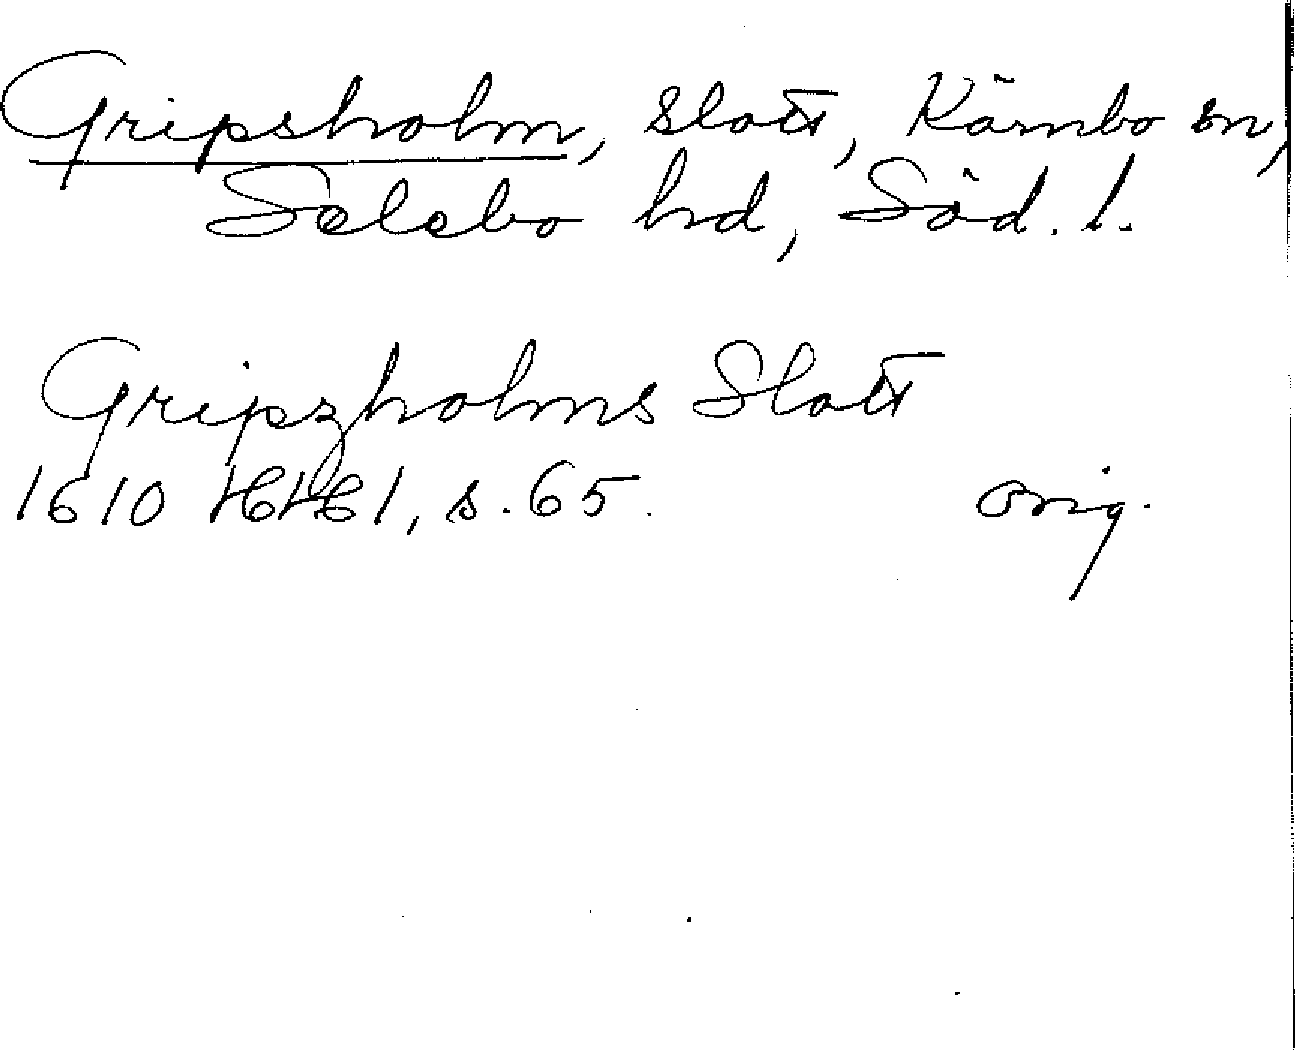 Gripsholm, slott, Kärnbo sn,
Selebo hd, Söd. l.
Gripzholms Slott
1610 HH 61, s. 65. orig.